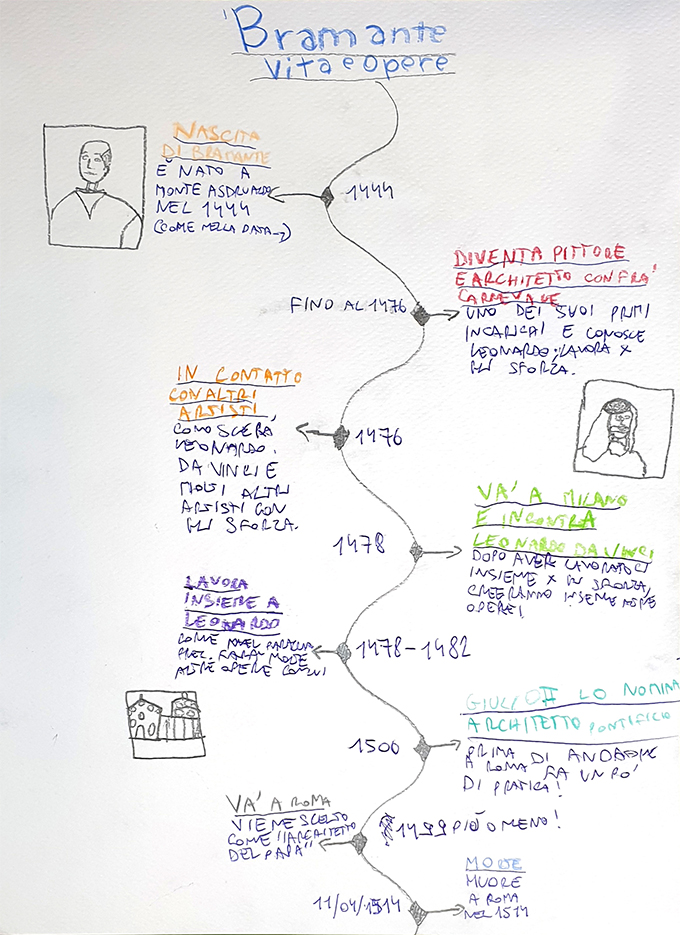 Bramante
Vita e opere
NASCITA
DI BRAMANTE
È NATO A
MONTE ASDRUALDO
NEL 1444
(COME NELLA DATA→)
1444
DIVENTA PITTORE
E ARCHITETTO CON FRA'
CARNEVALE
FINO AL 1476
UNO DEI SUOI PRIMI
INCARICHI E CONOSCE
LEONARDO; LAVORA X
GLI SFORZA.
IN CONTATTO
CON ALTRI
ARTISTI
CONOSCERÀ
LEONARDO
DA VINCI E
MOLTI ALTRI
ARTISTI CON
GLI SFORZA.
1476
VA' A MILANO
E INCONTRA
LEONARDO DA VINCI
1478
DOPO AVER LAVORATO
INSIEME X GLI SFORZA,
CREERANNO INSIEME
OPERE!
LAVORA
INSIEME A
LEONARDO
COME
ALTRE OPERE
1478-1482
GIULIO II LO NOMINA
ARCHITETTO PONTIFICIO
1500
PRIMA DI ANDARE
A ROMA FA UN PO'
DI PRATICA!
VA' A ROMA
VIENE SCELTO
COME "ARCHITETTO
DEL PAPA"
1499 PIÙ O MENO!
MORTE
MUORE
A ROMA
NEL 1514
11/04/1514